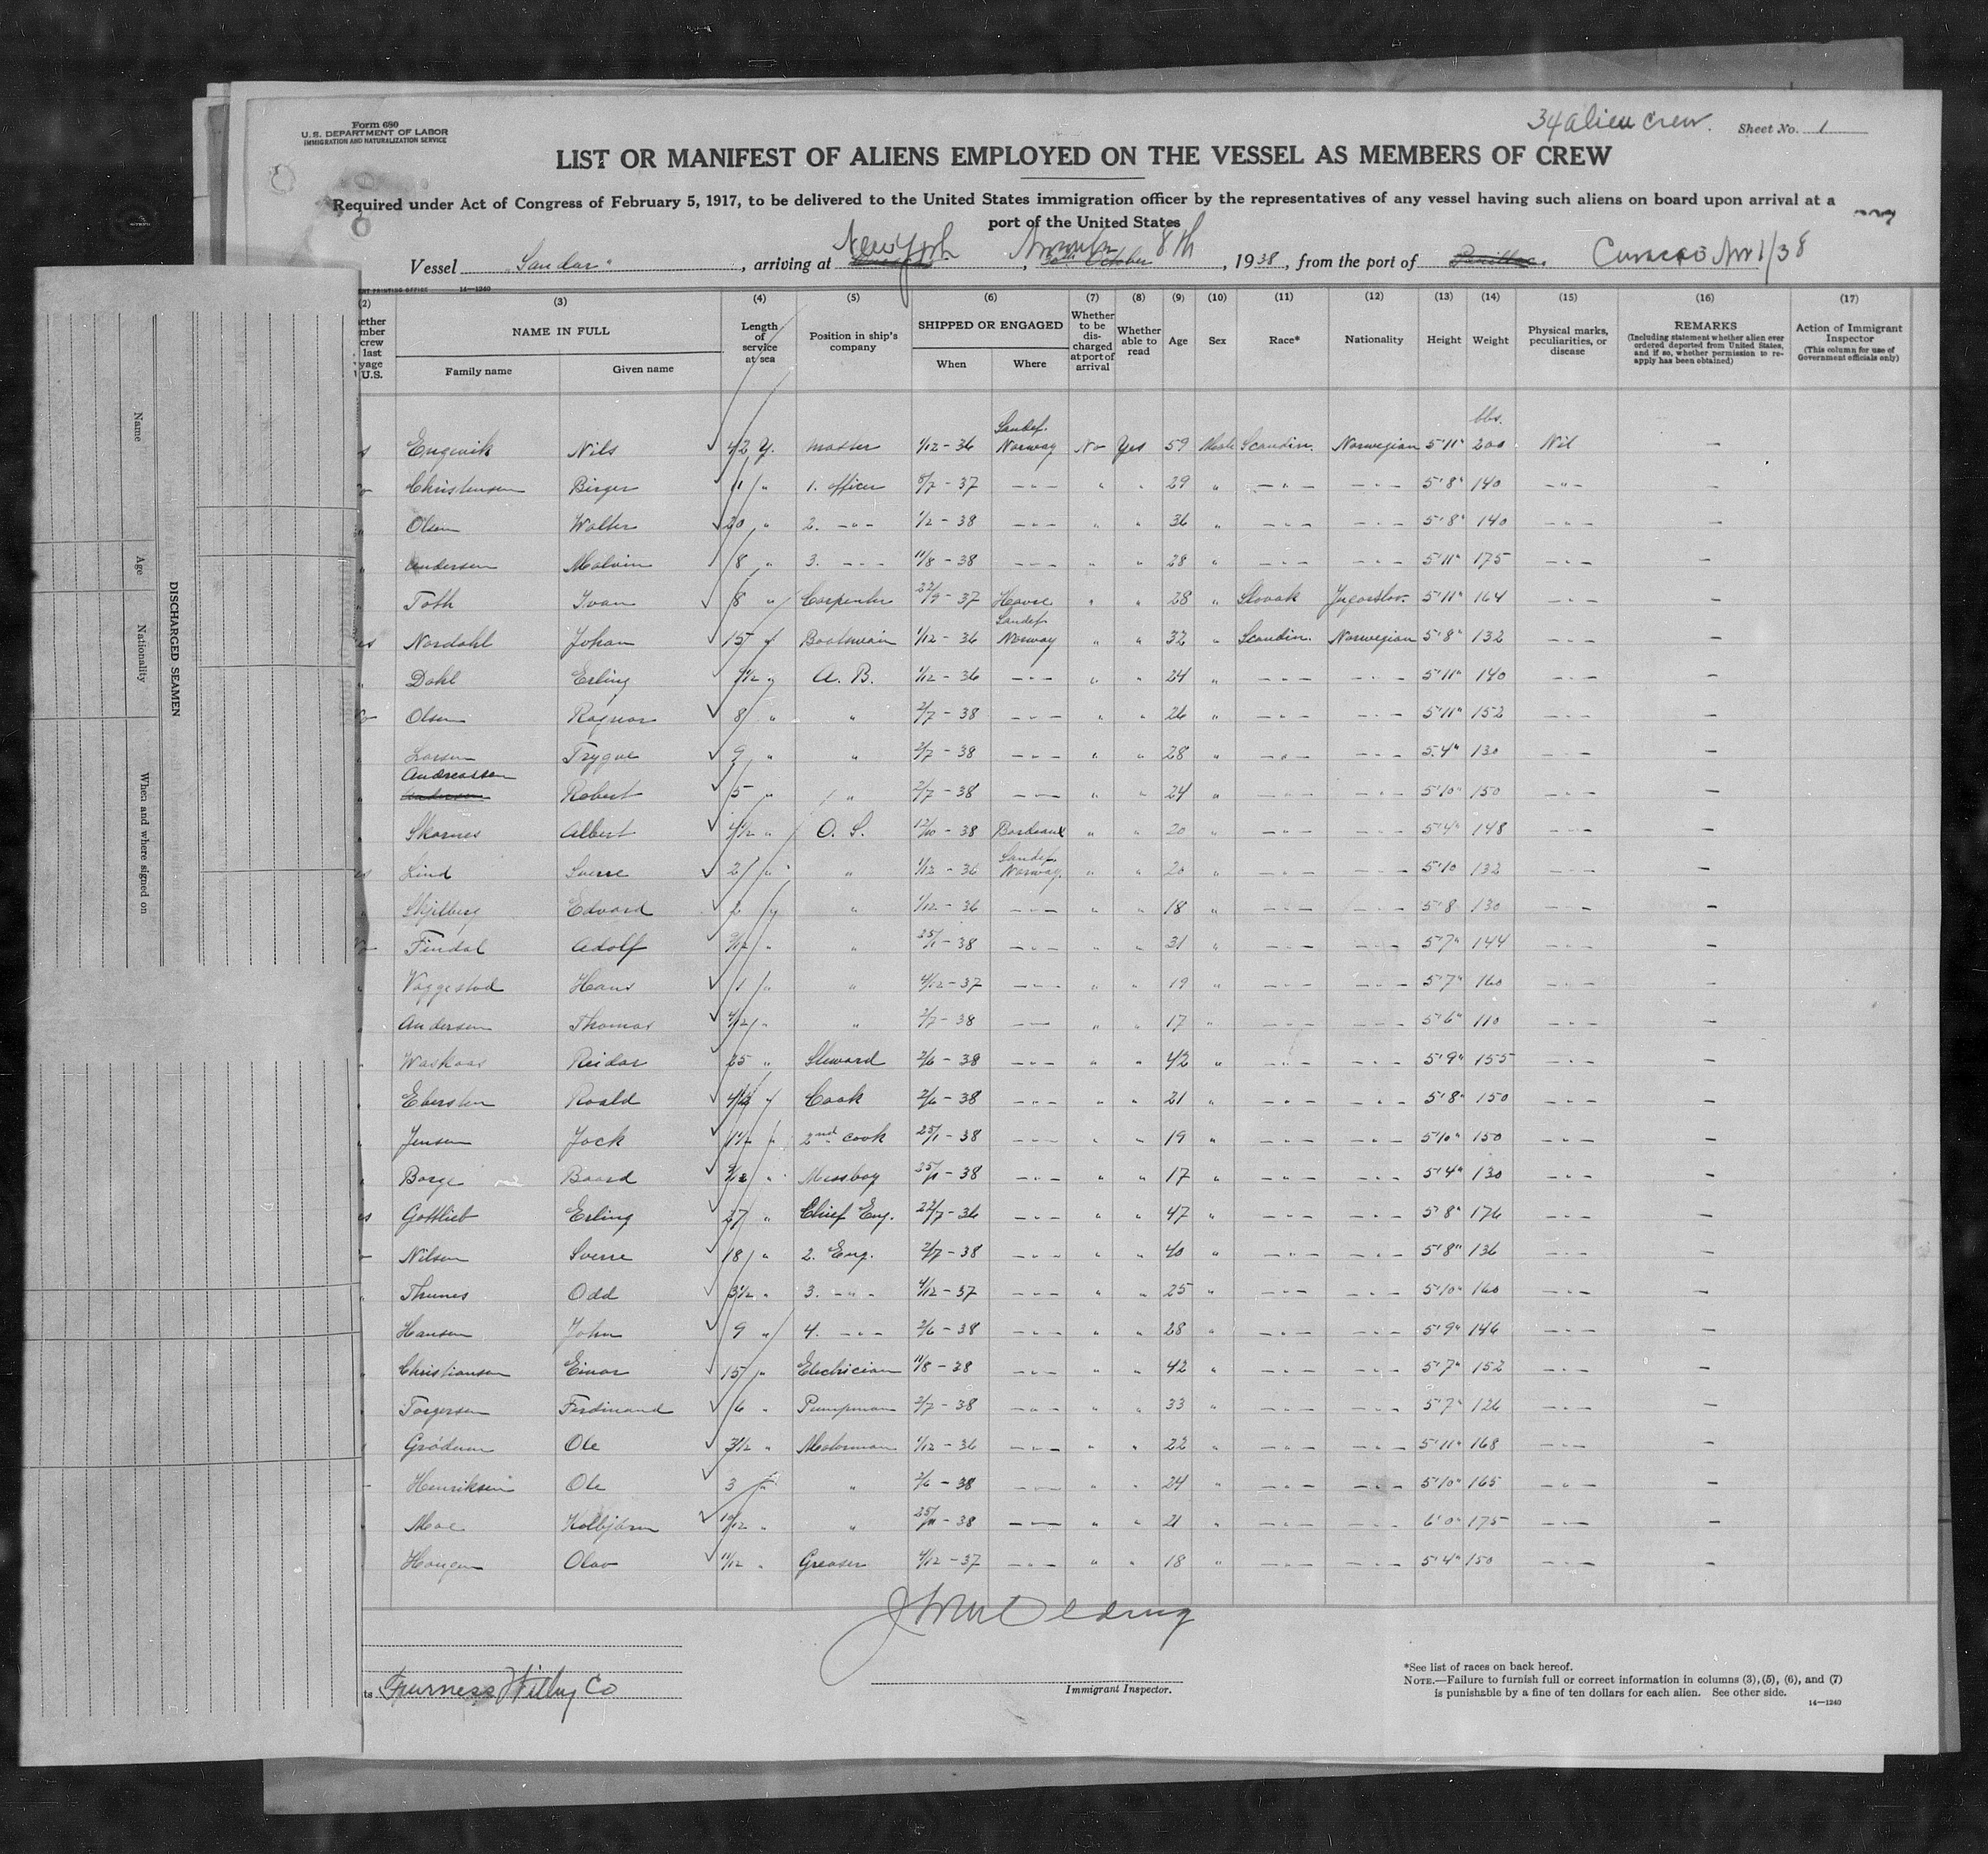 34 alien crew.
Form 680
U. S. DEPARTMENT OF LABOR
IMMIGRATION AND NATURALIZATION SERVICE
Sheet No. 1
LIST OR MANIFEST OF ALIENS EMPLOYED ON THE VESSEL AS MEMBERS OF CREW
Required under Act of Congress of February 5, 1917, to be delivered to the United States immigration officer by the representatives of any vessel having such aliens on board upon arrival at a
port of the United States
Vessel "Sandar", arriving at New York, 8th, 1938, from the port of Curacao Nov 1/38
14—1240
(2) (3) (4) (5) (6) (7) (8) (9) (10) (11) (12) (13) (14) (15) (16) (17)
NAME IN FULL
Family name Given name
Length of service at sea
Position in ship's company
SHIPPED OR ENGAGED
When Where
Whether to be discharged at port of arrival
Whether able to read
Age
Sex
Race*
Nationality
Height
Weight
Physical marks, peculiarities, or disease
REMARKS
(Including statement whether alien ever ordered deported from United States, and if so, whether permission to reapply has been obtained)
Action of Immigrant Inspector
(This column for use of Government officials only)
Engevik Nils 42 Y. Master 1/12 - 36 Sandef. Norway No Yes 59 Male Scandin. Norwegian 5'11" lbs. 200 Nil —
Christensen Birger 11 " 1. officer 5/7 - 37 - " - " " 29 " - " - - " - 5'8" 140 - " - —
Olsen Walter 20 " 2. - " - 1/2 - 38 - " - " " 36 " - " - - " - 5'8" 140 - " - —
Andersen Malvin 8 " 3. - " - 11/8 - 38 - " - " " 28 " - " - - " - 5'11" 175 - " - —
Toth Ivan 8 " Carpenter 22/9 - 37 Havre " " 28 " Slovak Jugoslov. 5'11" 164 - " - —
Nordahl Johan 15 y Boatswain 1/12 - 36 Sandef. Norway " " 32 " Scandin. Norwegian 5'8" 132 - " - —
Dahl Erling 1/12 - 36 A. B. - " - " " 24 " - " - - " - 5'11" 140 - " - —
Olsen Ragnar 8 " " 2/7 - 38 - " - " " 26 " - " - - " - 5'11" 152 - " - —
Larsen Trygve 9 " " 2/7 - 38 - " - " " 28 " - " - - " - 5'4" 130 - " - —
Andreassen Robert 5 " " 2/7 - 38 - " - " " 24 " - " - - " - 5'10" 150 - " - —
Skarnes Albert 4 1/2 " O. S. 12/10 - 38 Bordeaux " " 20 " - " - - " - 5'4" 148 - " - —
Lind Sverre 2 " " 1/12 - 36 Sandef. Norway " " 20 " - " - - " - 5'10 132 - " - —
Skjelberg Edvard 2 y " 1/12 - 36 - " - " " 18 " - " - - " - 5'8 130 - " - —
Findal Adolf " " 25/1 - 38 - " - " " 31 " - " - - " - 5'7" 144 - " - —
Vaggestad Hans 1 " " 4/12 - 37 - " - " " 19 " - " - - " - 5'7" 160 - " - —
Andersen Thomas 4/12 " " 2/7 - 38 - " - " " 17 " - " - - " - 5'6" 110 - " - —
Reidar 25 " Steward 2/6 - 38 - " - " " 42 " - " - - " - 5'9" 155 - " - —
Ebersten Roald 4 1/2 y Cook 2/6 - 38 - " - " " 21 " - " - - " - 5'8" 150 - " - —
Jensen Jack 1 1/2 " 2nd cook 25/1 - 38 - " - " " 19 " - " - - " - 5'10" 150 - " - —
Borge Baard " Messboy 25/1 - 38 - " - " " 17 " - " - - " - 5'4" 130 - " - —
Gottlieb Erling 27 " Chief Eng. 22/7 - 36 - " - " " 47 " - " - - " - 5'8" 176 - " - —
Nilsen Sverre 18 " 2. Eng. 2/7 - 38 - " - " " 40 " - " - - " - 5'8" 136 - " - —
Thunes Odd 3 1/2 " 3. - " - 4/12 - 37 - " - " " 25 " - " - - " - 5'10" 160 - " - —
Hansen John 9 " 4. - " - 2/6 - 38 - " - " " 28 " - " - - " - 5'9" 146 - " - —
Christiansen Einar 15 " Electrician 11/8 - 38 - " - " " 42 " - " - - " - 5'7" 152 - " - —
Torgersen Ferdinand 6 " Pumpman 2/7 - 38 - " - " " 33 " - " - - " - 5'7" 126 - " - —
Grödum Ole 3 1/2 " Motorman 1/12 - 36 - " - " " 22 " - " - - " - 5'11" 168 - " - —
Henriksen Ole 3 " " 2/6 - 38 - " - " " 24 " - " - - " - 5'10" 165 - " - —
Moe Kolbjörn 10/12 " " 38 - " - " " 21 " - " - - " - 6'0" 175 - " - —
Haugen Olav 11/12 " Greaser 4/12 - 37 - " - " " 18 " - " - - " - 5'4" 150 - " - —
Immigrant Inspector.
Furness Withy Co
*See list of races on back hereof.
NOTE.—Failure to furnish full or correct information in columns (3), (5), (6), and (7)
is punishable by a fine of ten dollars for each alien. See other side.
14—1240
DISCHARGED SEAMEN
Name
Age
Nationality
When and where signed on